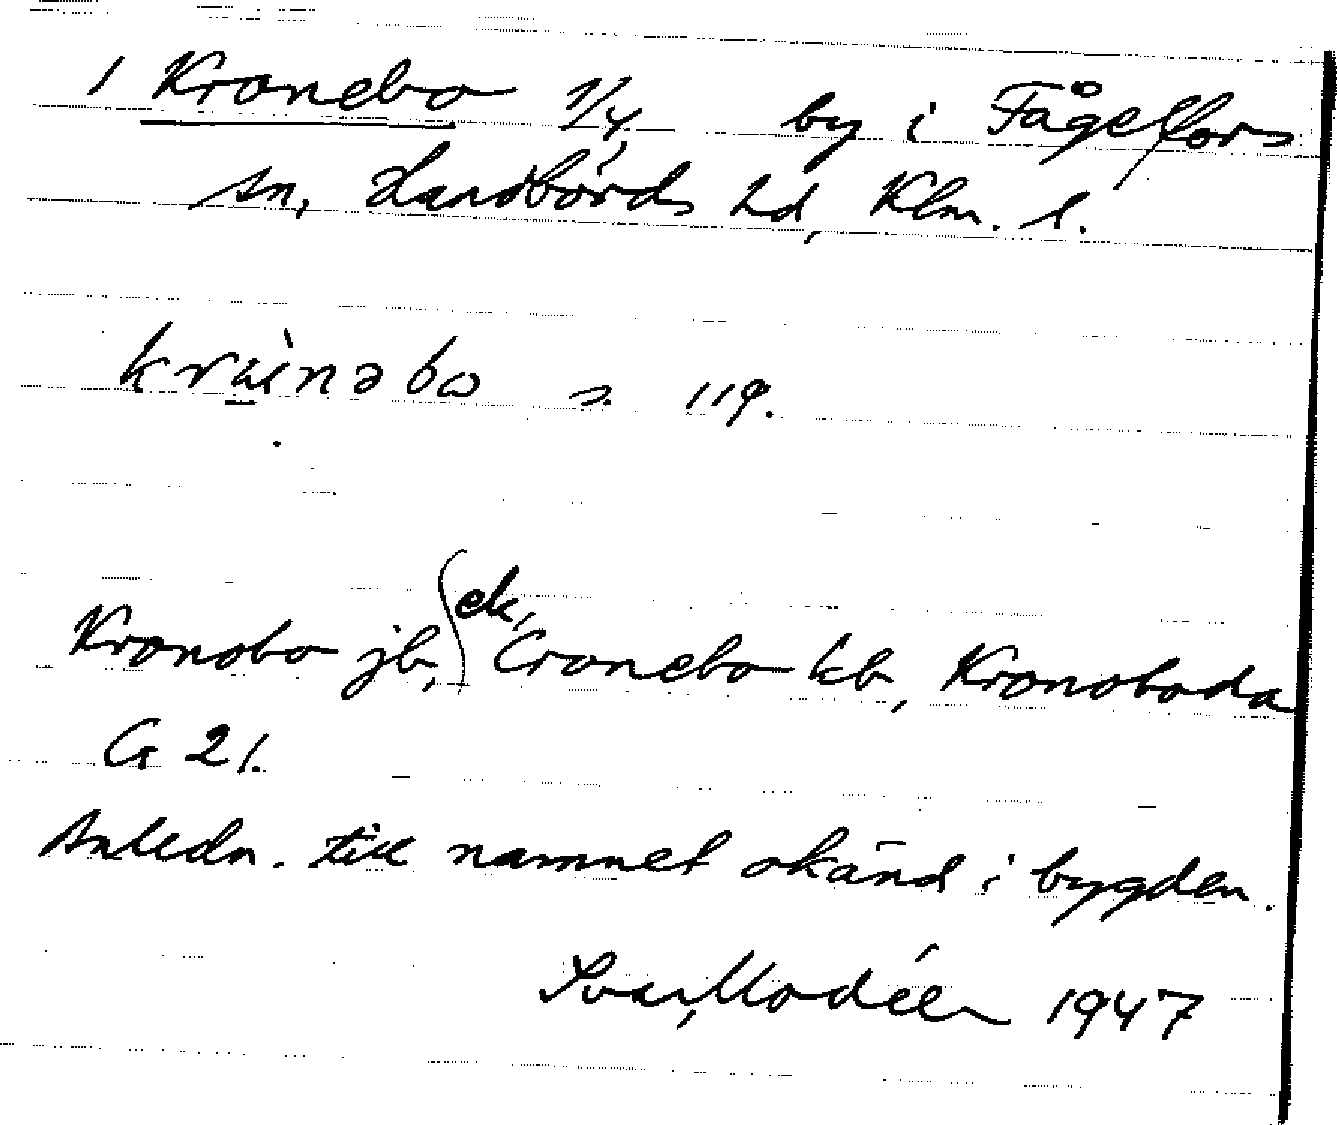 1 Kronebo 1/4, by i Fågelfors
sn, Handbörds hd, Klm. l.
s. 119.
Kronobo jb, ek, Cronebo kb, Kronoboda
G 21.
Anledn. till namnet okänd i bygden.
Ivar Modéer 1947